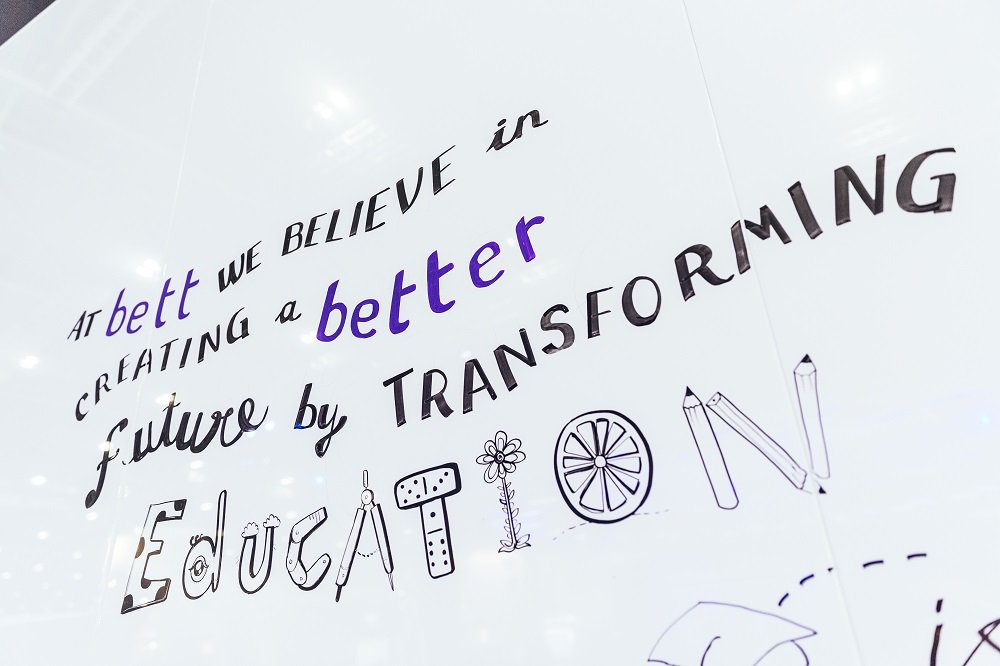 AT bett WE BELIEVE in
CREATING a better
future by TRANSFORMING
EdUCATION
is